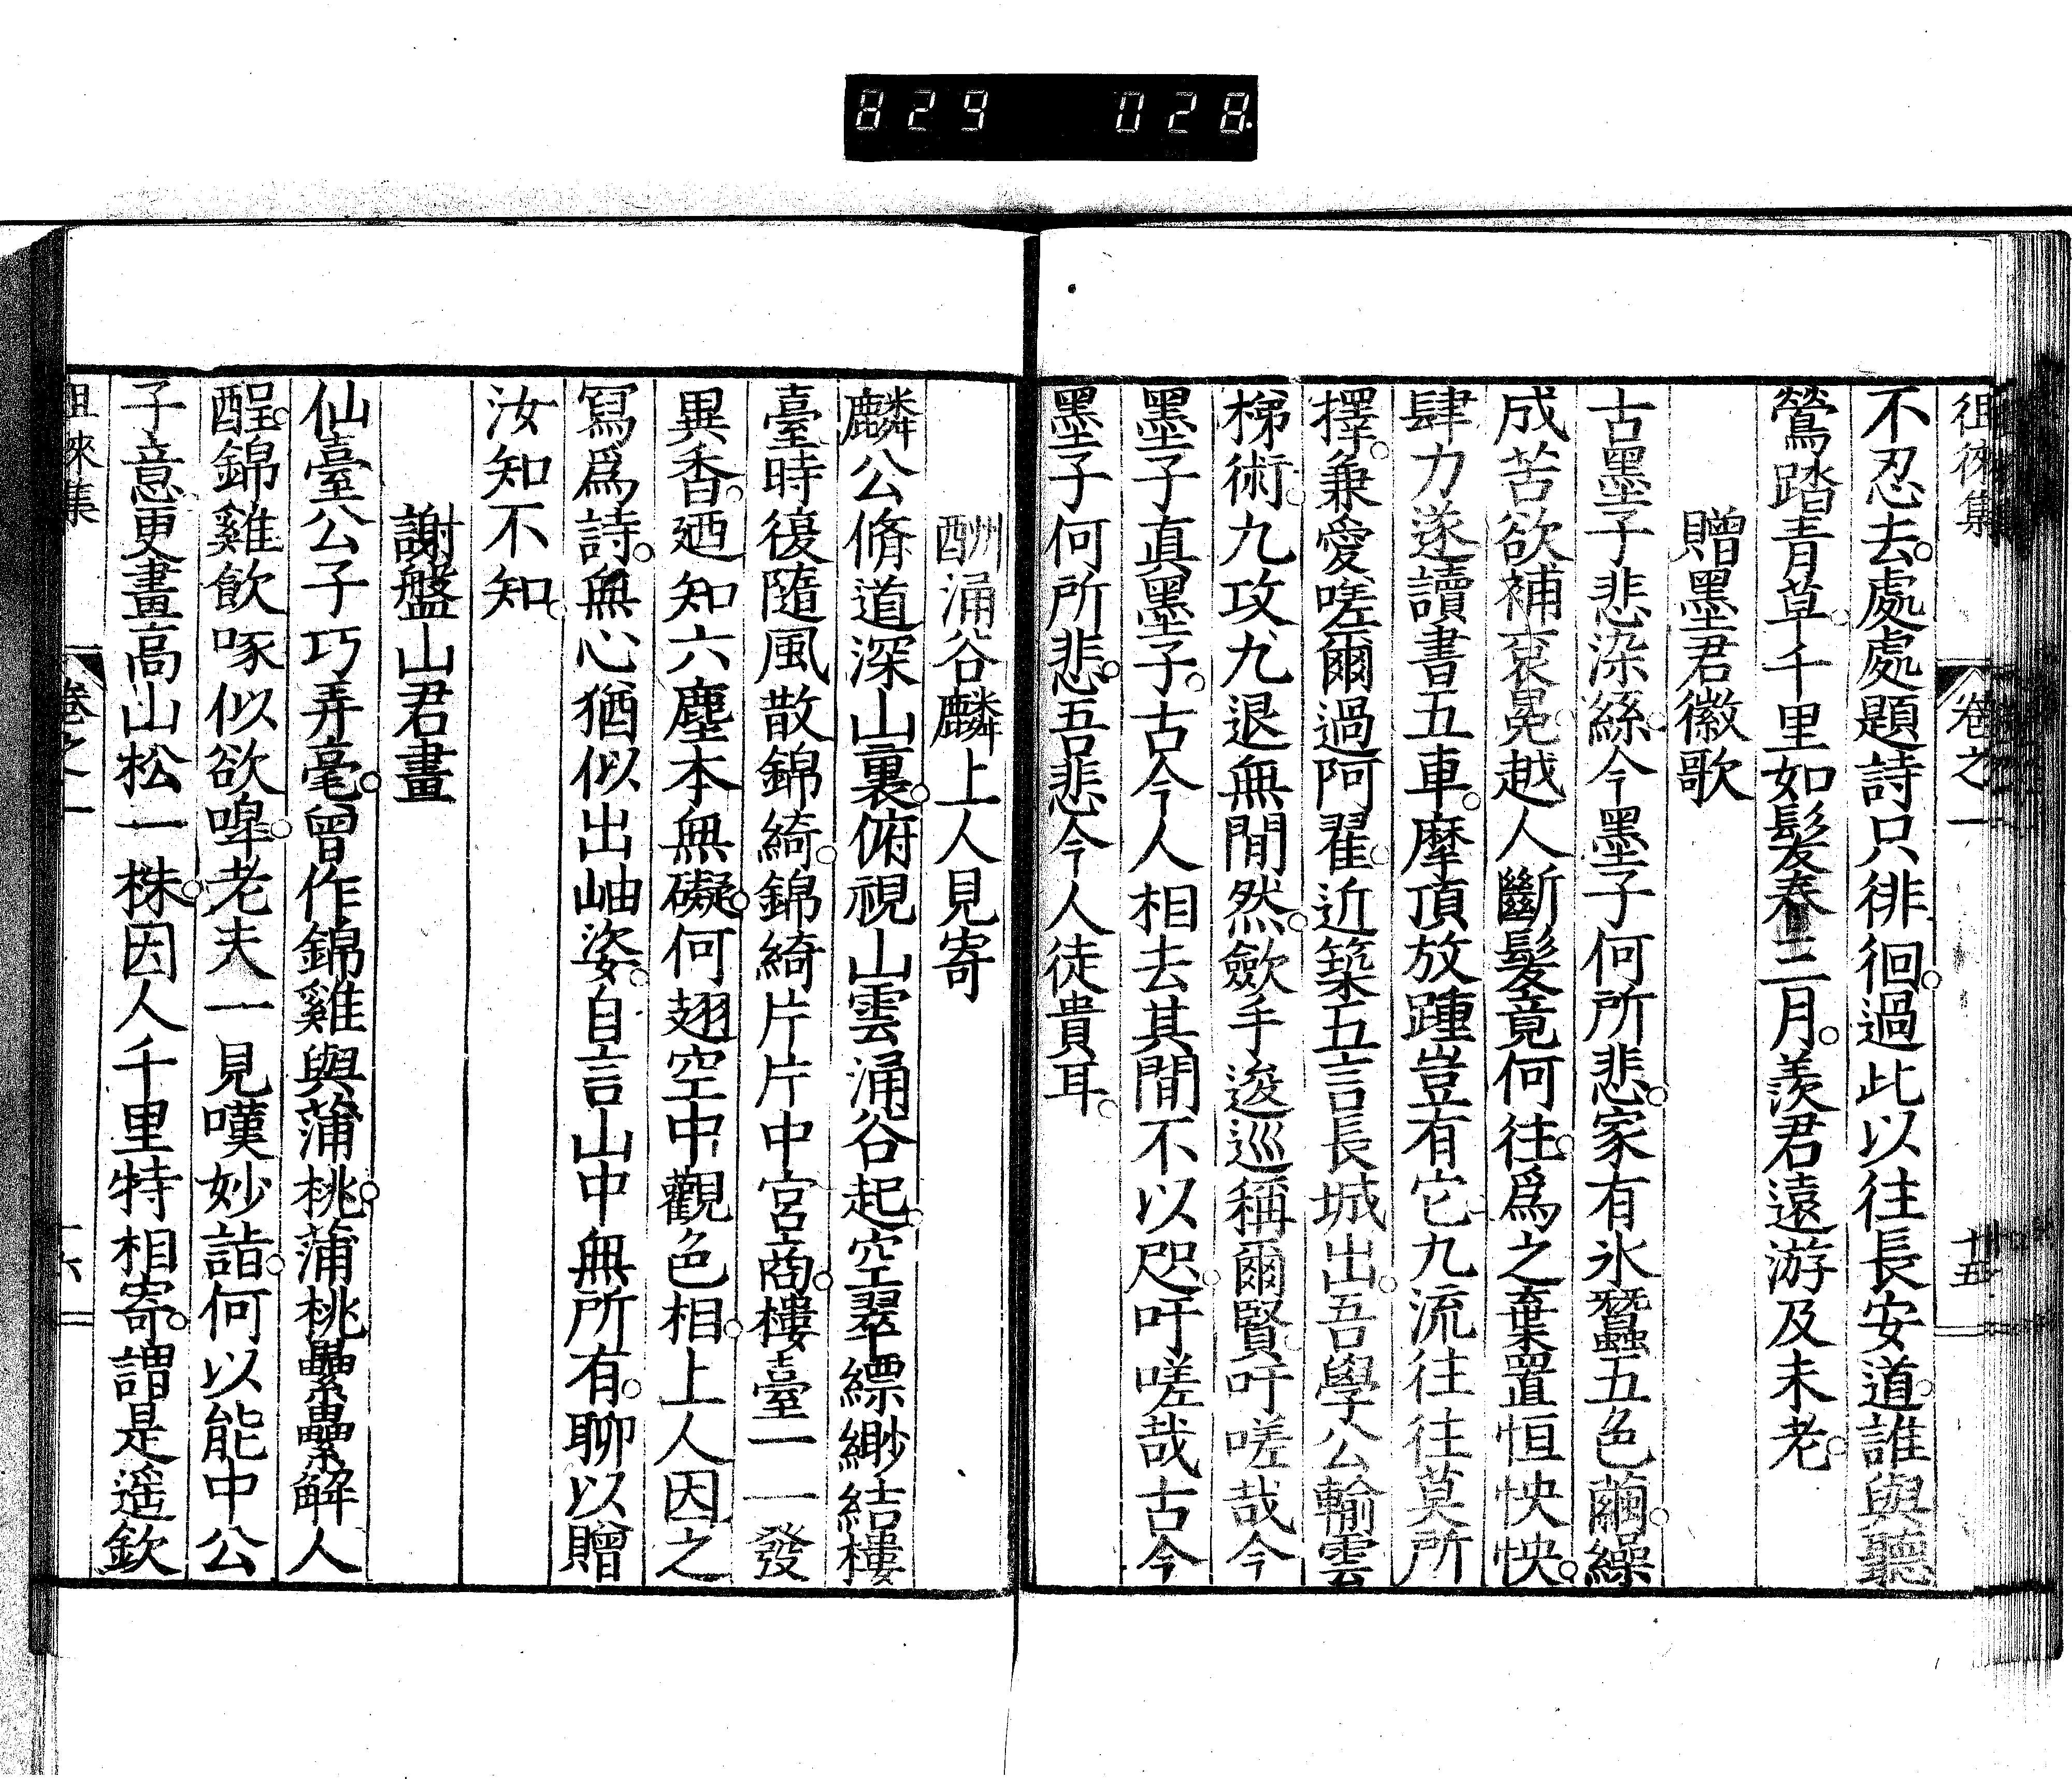 829 028
徂徠集 卷之一 十五
不忍去處處題詩只徘徊過此以往長安道誰與聽
鶯踏青草千里如髮春三月羨君遠游及未老
贈墨君徽歌
古墨子悲染絲今墨子何所悲家有氷蠶五色繭繰
成苦欲補衮冕越人斷髮竟何往爲之棄置恒怏怏
肆力遂讀書五車摩頂放踵豈有它九流往往莫所
擇兼愛嗟爾過阿翟近築五言長城出吾學公輸雲
梯術九攻九退無間然歛手逡巡稱爾賢吁嗟哉今
墨子真墨子古今人相去其間不以咫吁嗟哉古今
墨子何所悲吾悲今人徒貴耳
酬涌谷麟上人見寄
麟公脩道深山裏俯視山雲涌谷起空翠縹緲結樓
臺時復隨風散錦綺錦綺片片中宮商樓臺一一發
異香廼知六塵本無礙何翅空中觀色相上人因之
寫爲詩無心猶似出岫姿自言山中無所有聊以贈
汝知不知
謝盤山君畫
仙臺公子巧弄毫曾作錦雞與蒲桃蒲桃纍纍解人
酲錦雞飲啄似欲嘷老夫一見嘆妙詣何以能中公
子意更畫高山松一株因人千里特相寄謂是遥欽
徂徠集 卷之一 十六